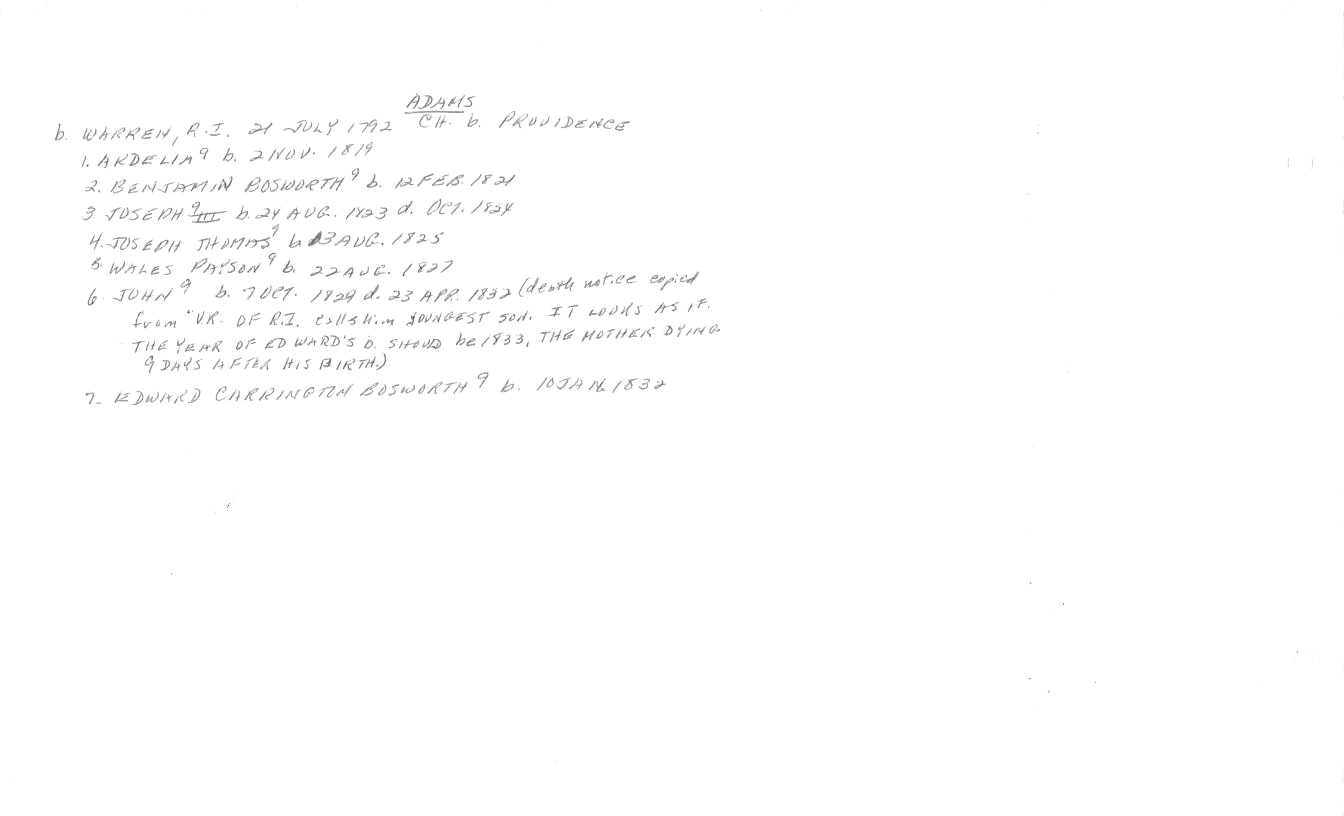 ADAMS
b. WARREN, R.I. 21 JULY 1792 CH. b. PROVIDENCE
1. ARDELIA 9 b. 2 NOV. 1819
2. BENJAMIN BOSWORTH 9 b. 12 FEB. 1821
3 JOSEPH 9 III b. 24 AUG. 1823 d. OCT. 1824
4. JOSEPH THOMAS 9 b. 3 AUG. 1825
5. WALES PAYSON 9 b. 22 AUG. 1827
6. JOHN 9 b. 7 OCT. 1829 d. 23 APR. 1832 (death notice copied
from "VR. OF R.I. calls him YOUNGEST SON. IT LOOKS AS IF.
THE YEAR OF EDWARD'S b. SHOULD be 1833, THE MOTHER DYING
9 DAYS AFTER HIS BIRTH.)
7- EDWARD CARRINGTON BOSWORTH 9 b. 10 JAN. 1832